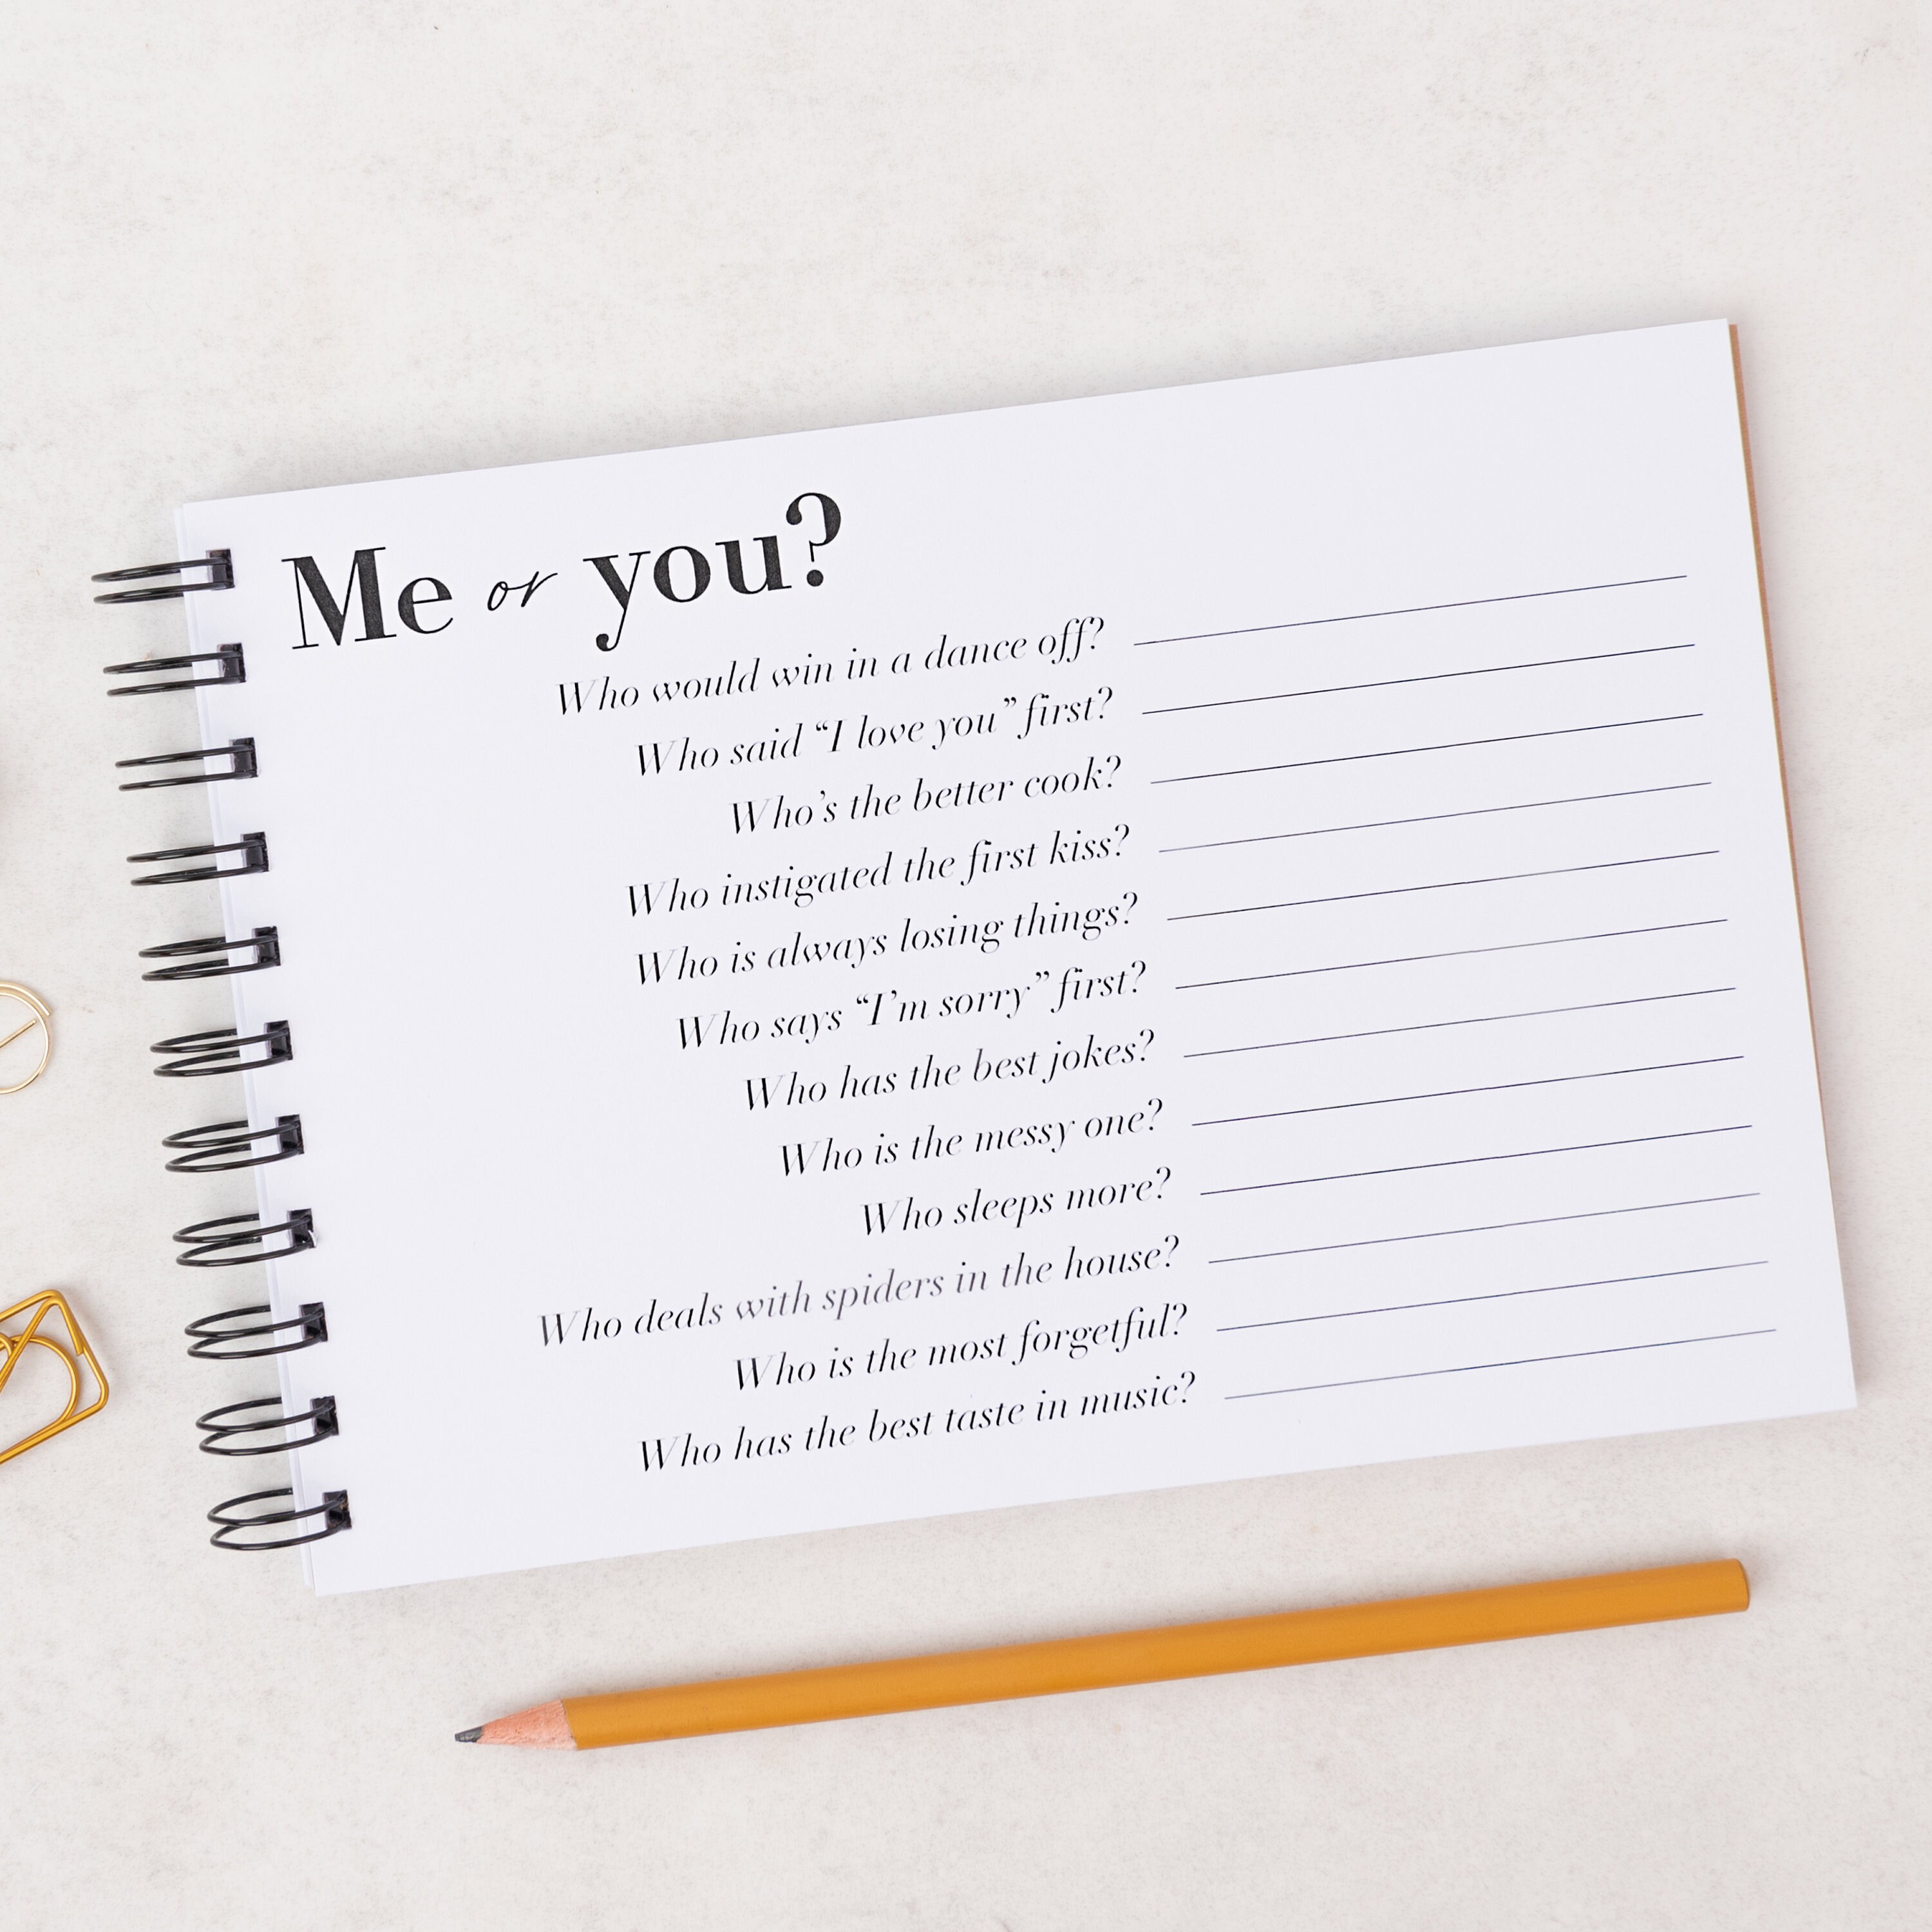 Me or you?
Who would win in a dance off?
Who said “I love you” first?
Who’s the better cook?
Who instigated the first kiss?
Who is always losing things?
Who says “I’m sorry” first?
Who has the best jokes?
Who is the messy one?
Who sleeps more?
Who deals with spiders in the house?
Who is the most forgetful?
Who has the best taste in music?